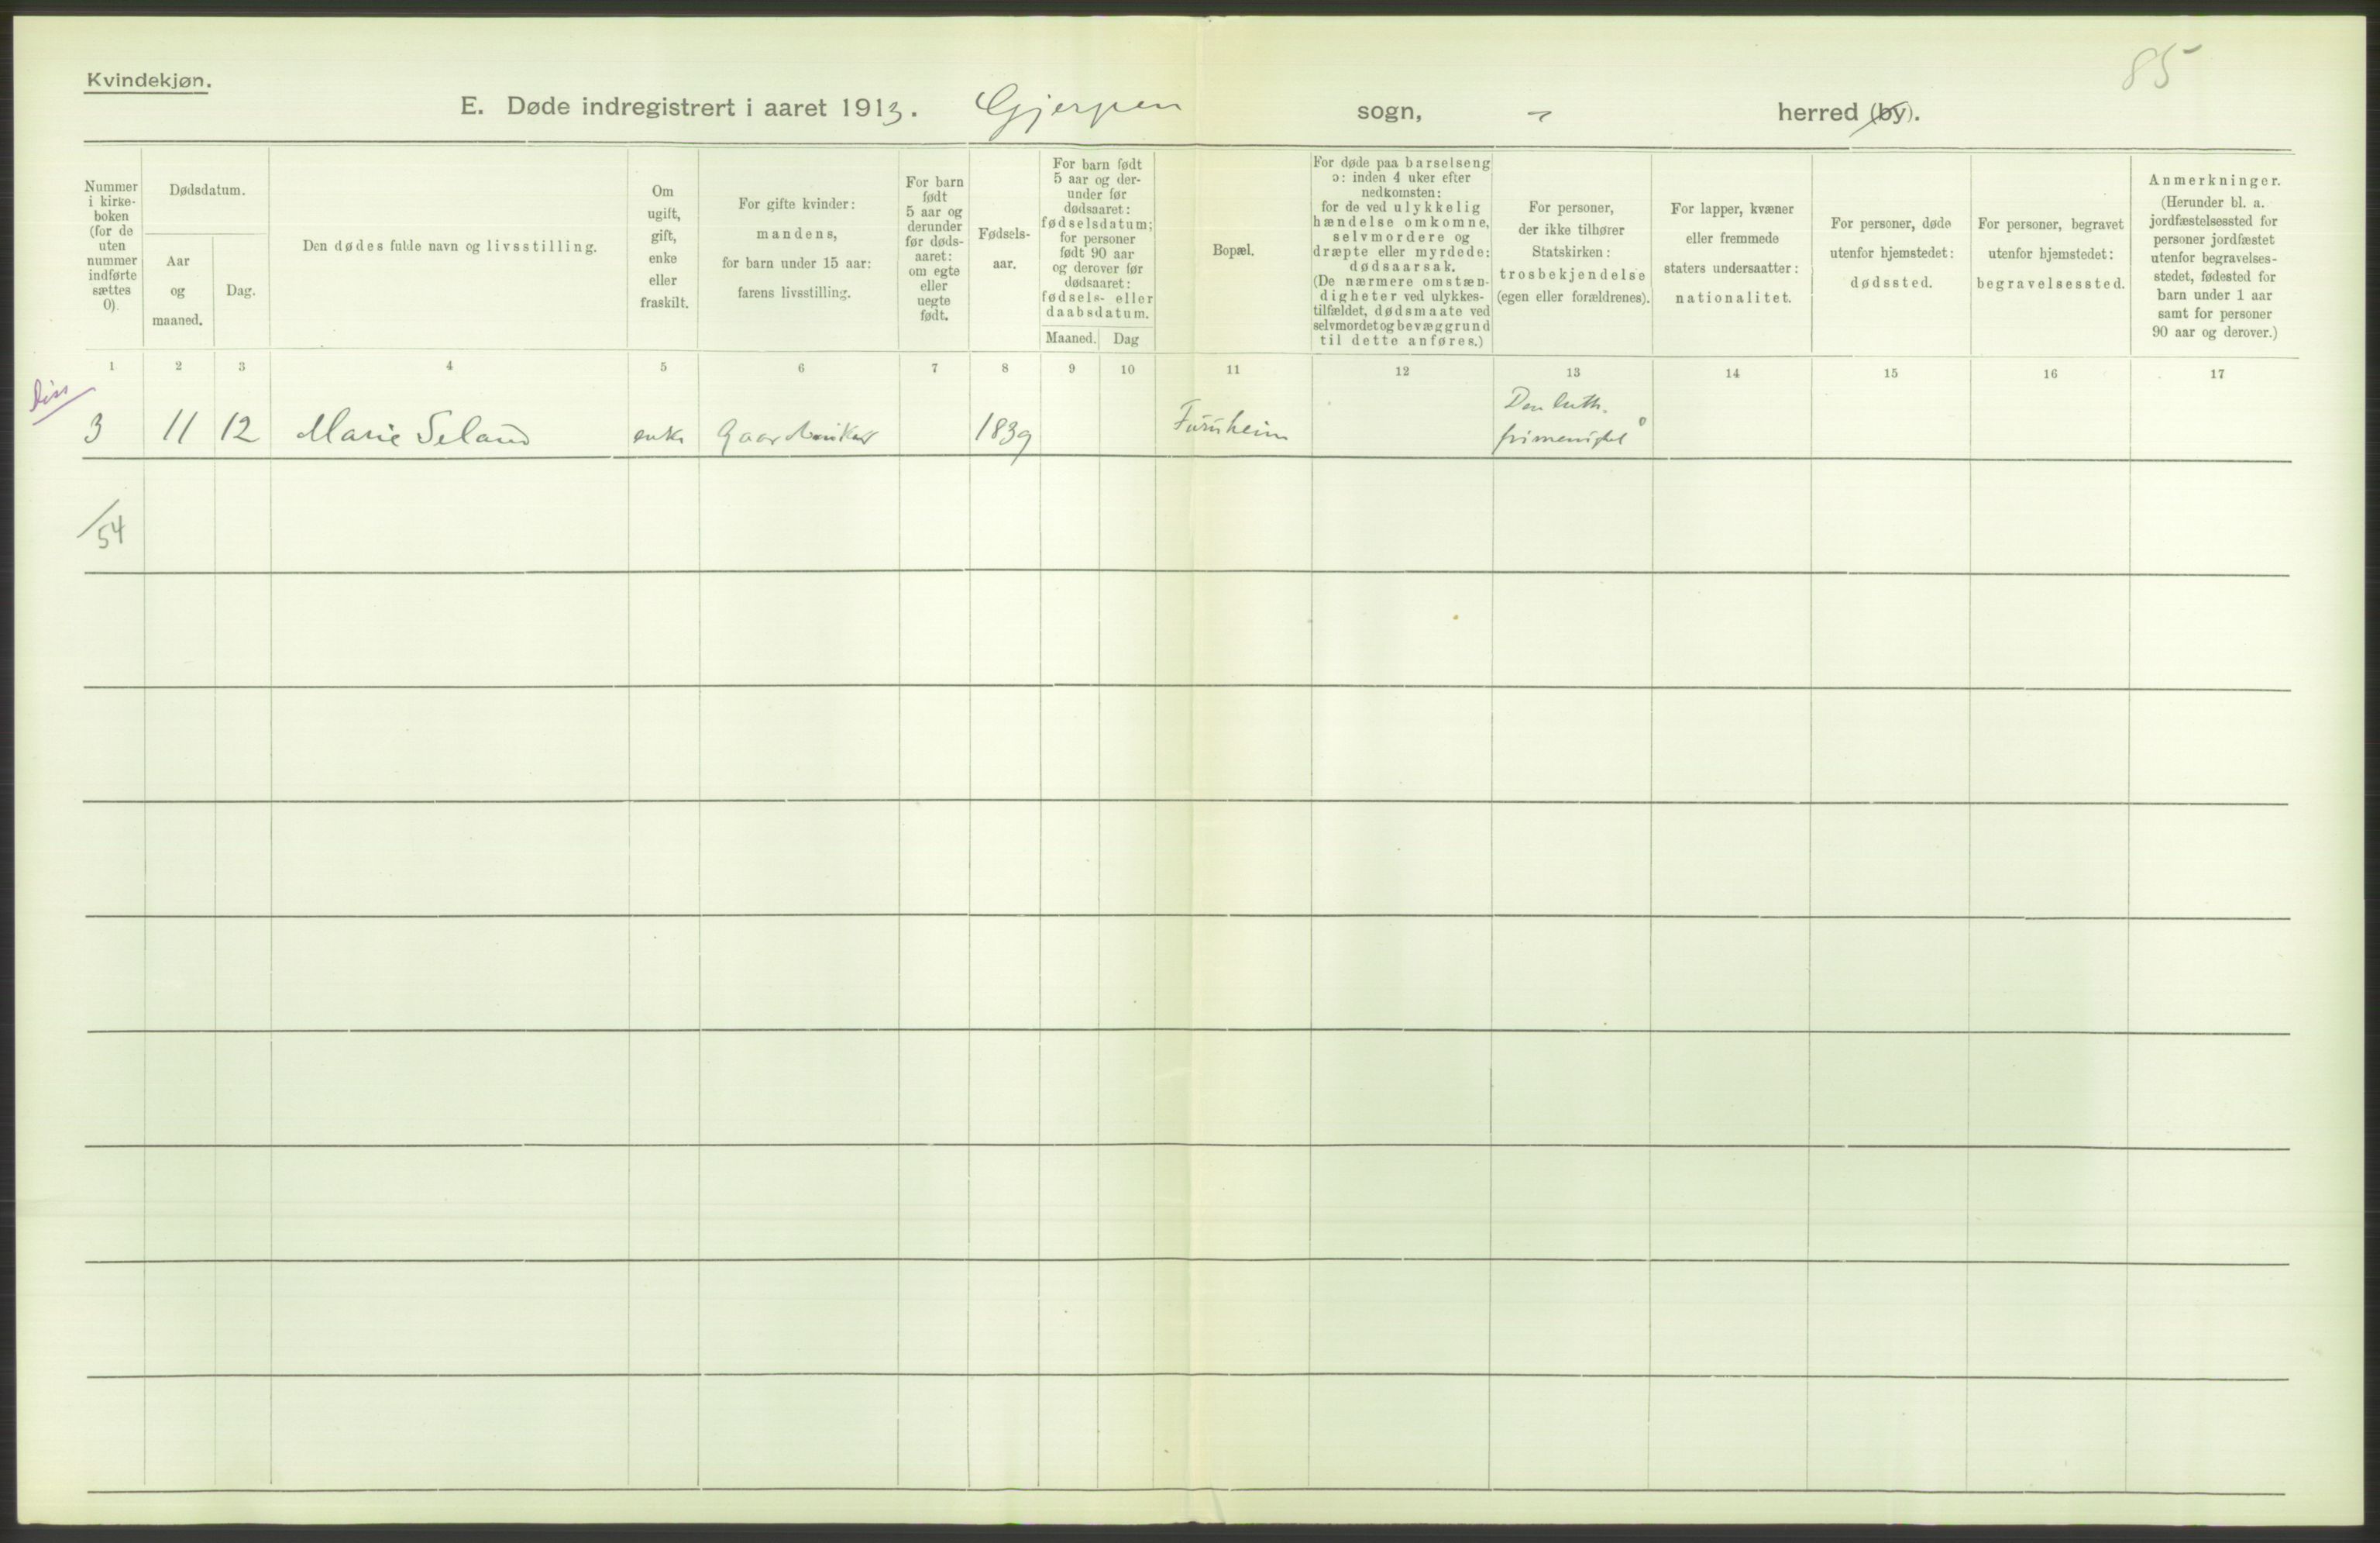 85
Kvindekjøn.
E. Døde indregistrert i aaret 1913. Gjerpen sogn, herred (by).
Nummer
i kirke-
boken
(for de
uten
nummer
indførte
sættes
0).
Dødsdatum.
Aar
og
maaned.
Dag.
Den dødes fulde navn og livsstilling.
Om
ugift,
gift,
enke
eller
fraskilt.
For gifte kvinder:
mandens,
for barn under 15 aar:
farens livsstilling.
For barn
født
5 aar og
derunder
før døds-
aaret:
om egte
eller
uegte
født.
Fødsels-
aar.
For barn født
5 aar og der-
under før
dødsaaret:
fødselsdatum;
for personer
født 90 aar
og derover før
dødsaaret:
fødsels- eller
daabsdatum.
Maaned. Dag
Bopæl.
For døde paa barselseng
ɔ: inden 4 uker efter
nedkomsten:
for de ved ulykkelig
hændelse omkomne,
selvmordere og
dræpte eller myrdede:
dødsaarsak.
(De nærmere omstæn-
digheter ved ulykkes-
tilfældet, dødsmaate ved
selvmordet og bevæggrund
til dette anføres.)
For personer,
der ikke tilhører
Statskirken:
trosbekjendelse
(egen eller forældrenes).
For lapper, kvæner
eller fremmede
staters undersaatter:
nationalitet.
For personer, døde
utenfor hjemstedet:
dødssted.
For personer, begravet
utenfor hjemstedet:
begravelsessted.
Anmerkninger.
(Herunder bl. a.
jordfæstelsessted for
personer jordfæstet
utenfor begravelses-
stedet, fødested for
barn under 1 aar
samt for personer
90 aar og derover.)
1 2 3 4 5 6 7 8 9 10 11 12 13 14 15 16 17
Diss
3 11 12 Marie Seland enke Gaardbruker 1839 Furuheim Den luth.
frimenighet
54